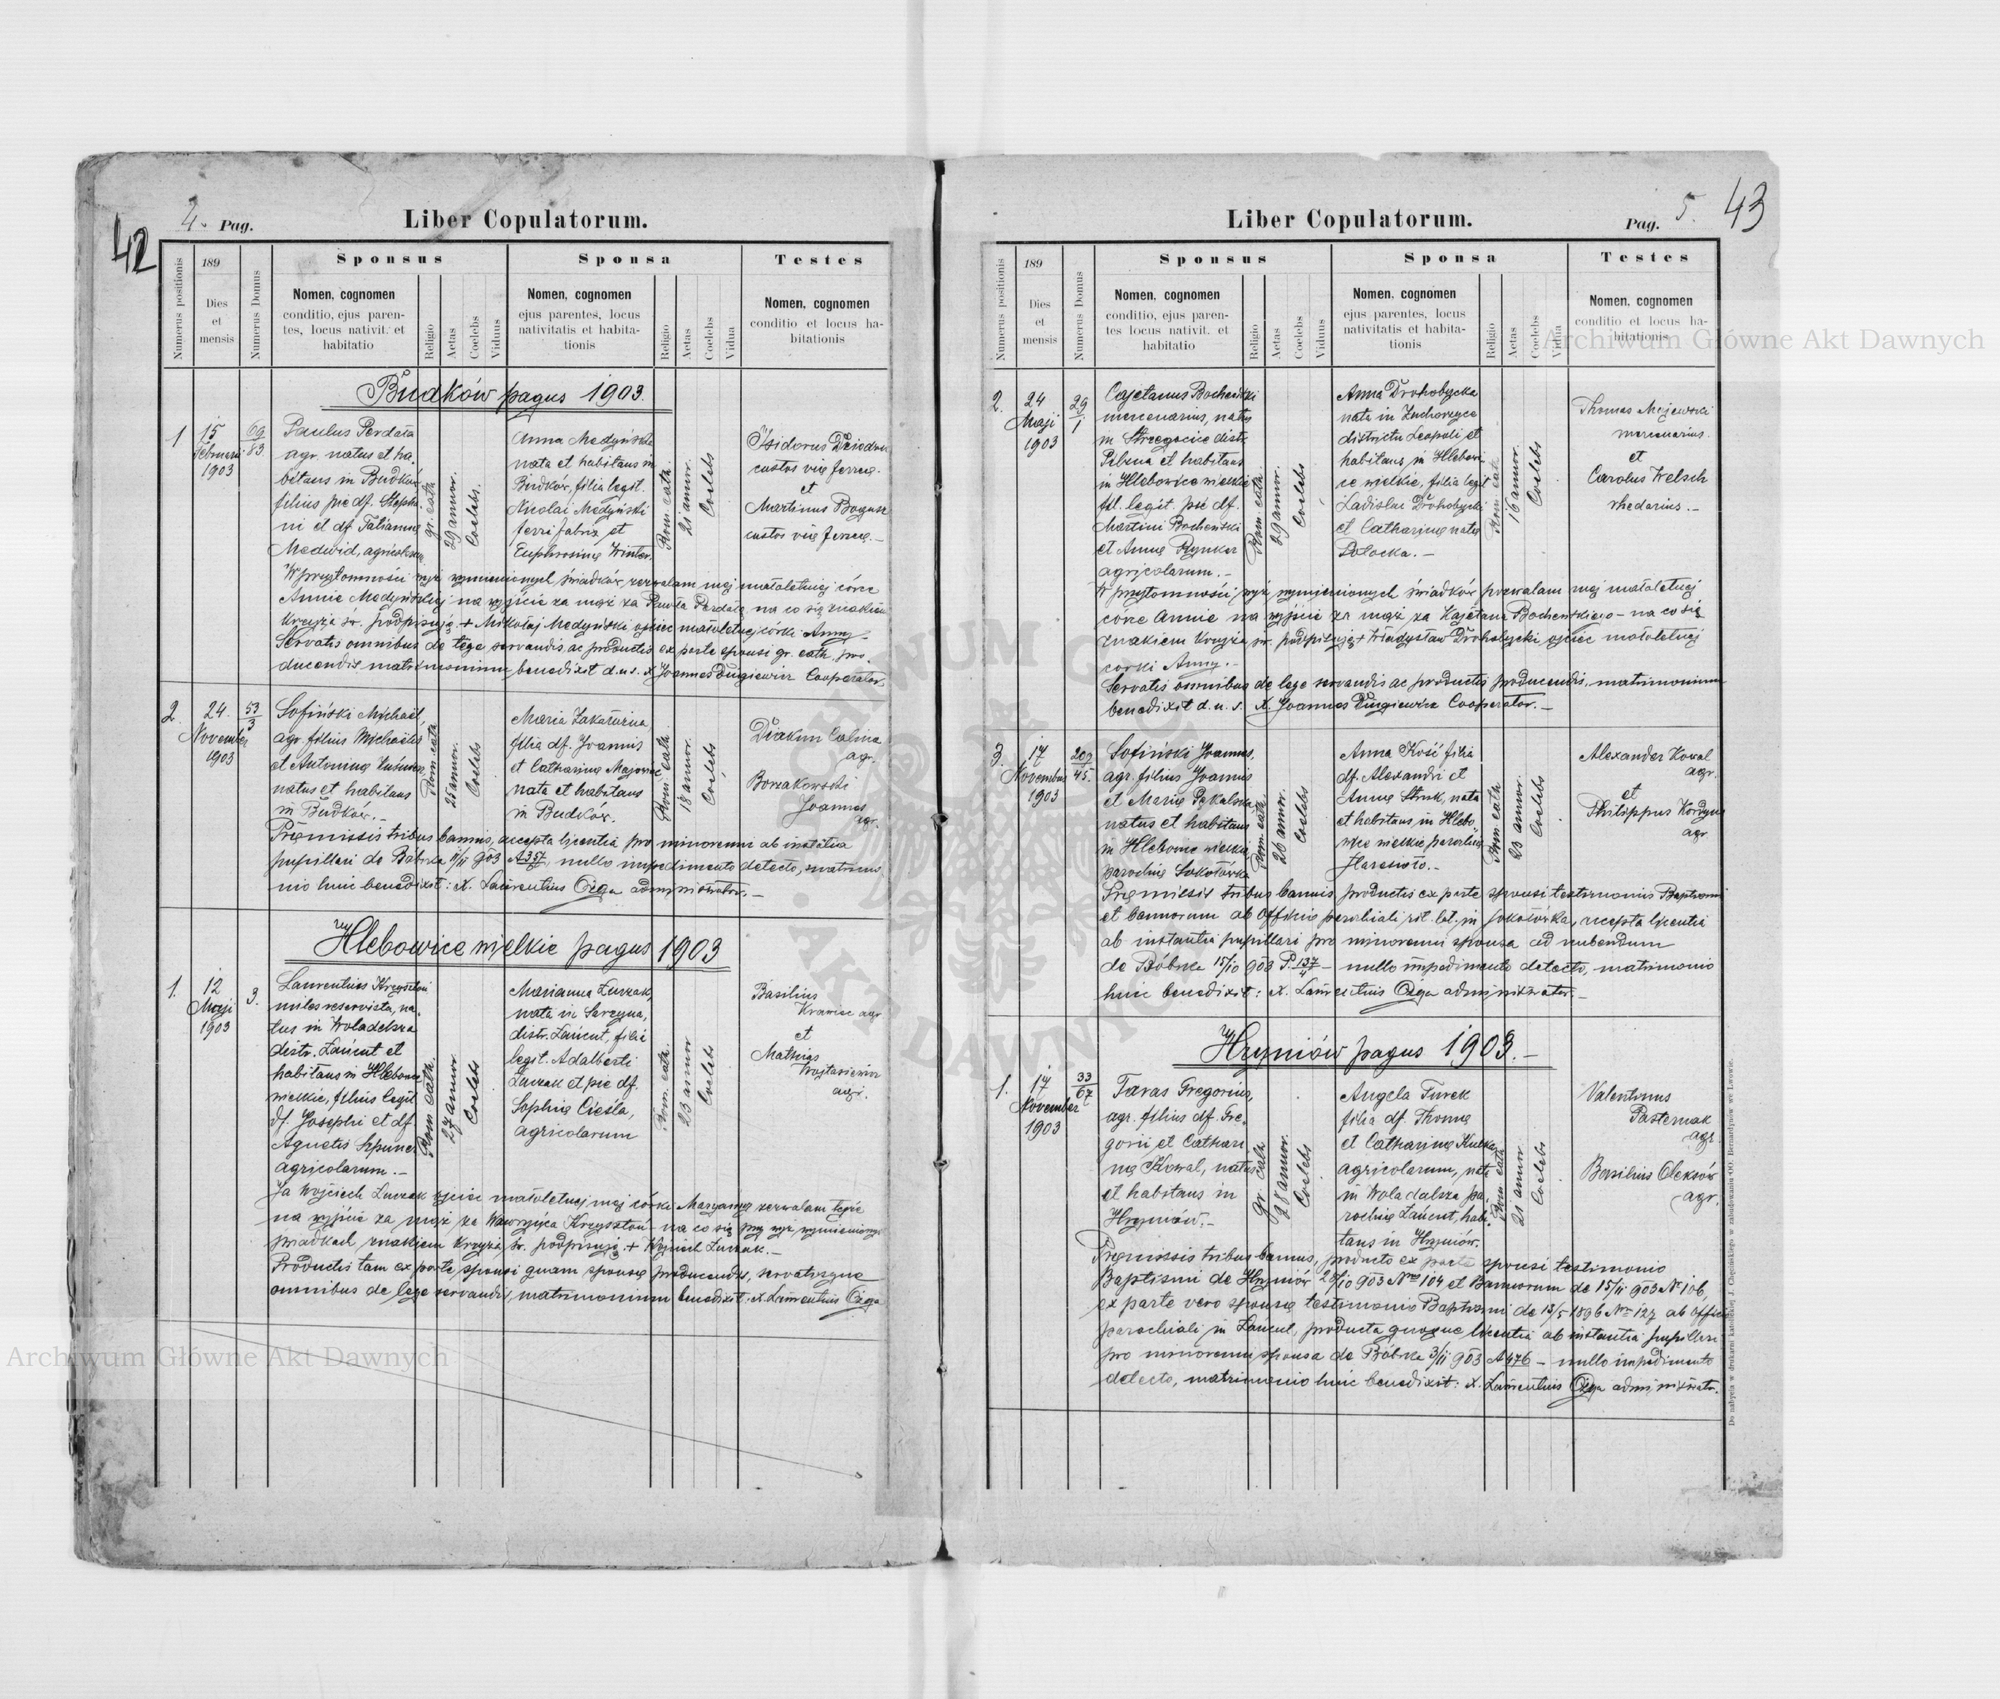 42
4. Pag.
Liber Copulatorum.
Numerus positionis
189
Dies
et
mensis
Numerus Domus
Sponsus
Nomen, cognomen
conditio, ejus paren-
tes, locus nativit. et
habitatio
Religio
Aetas
Coelebs
Viduus
Sponsa
Nomen, cognomen
ejus parentes, locus
nativitatis et habita-
tionis
Religio
Aetas
Coelebs
Vidua
Testes
Nomen, cognomen
conditio et locus ha-
bitationis
Budków pagus 1903.
1
15
Februarii
1903
69
83
Paulus Perdała
agr. natus et ha-
bitans in Budków
filius pie df. Stepha-
ni et df. Tatianna
Medwid, agricolarum
gr. cath.
29 annor.
Coelebs.
Anna Medyńska
nata et habitans in
Budków, filia legit.
Nicolai Medyński
ferri fabri et
Euphrosinę Winter.
Rom. cath.
21 annor.
Coelebs
Isidorus
custos vię ferreę.
et
Martinus
custos vię ferreę.-
W przytomności wyż wymienionych świadków zezwalam mej małoletniej córce
Annie Medyńskiej na wyjście za mąż za Pawła Perdałę na co się znakiem
krzyża św. podpisuję + Mikołaj Medyński ojciec małoletniej córki Anny.
Servatis omnibus de lege servandis ac productis ex parte sponsi gr. cath. pro-
ducendis matrimonium benedixit d.u.s. X. Joannes Długiewicz Cooperator
2.
24.
November
1903
53
3
Sofiński Michael,
agr. filius Michaelis
et Antoninę
natus et habitans
in Budków.-
Rom. cath.
25 annor.
Coelebs
Maria
filia df. Joannis
et Catharinę
nata et habitans
in Budków.
Rom. cath.
18 annor.
Coelebs
Diakun
agr.
Borzakowski
Joannes
agr.
Pręmissis tribus bannis, accepta licentia pro minorenni ab instatia
pupillari de Bóbrka 9/11 903 A 357, nullo impedimento detecto, matrimo-
nio huic benedixit: X. Laurentius Ożga administrator.-
Hlebowice wielkie pagus 1903
1.
12
Maji
1903
3.
Laurentius Krzysztoń
miles reservista, na-
tus in Woladelsza
distr. Łańcut et
habitans in Hlebowice
wielkie, filius legit.
df. Josephi et df.
Agnetis Szpunar
agricolarum.-
Rom. cath.
27 annor
Coelebs
Marianna Luszak,
nata in Sarzyna,
distr. Łańcut, filia
legit. Adalberti
Luszak et pie df.
Sophię Cieśla,
agricolarum
Rom. cath.
23 annor
Coelebs
Basilius
Krawiec agr.
et
Mathias
Wojtasiewicz
agr.
Ja Wojciech Luszak ojciec małoletniej mej córki Maryanny zezwalam tejże
na wyjście za mąż za Wawrzyńca Krzysztoń na co się przy wyż wymienionych
świadkach znakiem krzyża św. podpisuję + Wojciech Luszak.-
Productis tam ex parte sponsi quam sponsę producendis, servatisque
omnibus de lege servandis, matrimonium benedixit: X. Laurentius Ożga
Pag. 5.
43
Liber Copulatorum.
Numerus positionis
189
Dies
et
mensis
Numerus Domus
Sponsus
Nomen, cognomen
conditio, ejus paren-
tes locus nativit. et
habitatio
Religio
Aetas
Coelebs
Viduus
Sponsa
Nomen, cognomen
ejus parentes, locus
nativitatis et habita-
tionis
Religio
Aetas
Coelebs
Vidua
Testes
Nomen, cognomen
conditio et locus ha-
bitationis
2.
24
Maji
1903
29
1
Cajetanus Bocheński
mercenarius, natus
in Strzegocice distr.
Pilzna et habitans
in Hlebowice wielkie
fil. legit. pie df.
Martini Bocheński
et Annę Rynkar
agricolarum.-
Rom. cath.
29 annor.
Coelebs
Anna Drohobycka
nata in Zuchorzyce
districtu Leopoli et
habitans in Hlebowi-
ce wielkie, filia legit
Ladislai Drohobycki
et Catharinę natę
Potocka.-
Rom. cath.
16 annor.
Coelebs
Thomas Majewski
mercenarius.
et
Carolus Welsch
rhedarius.-
W przytomności wyż wymienionych świadków pozwalam mej małoletniej
córce Annie na wyjście za mąż za Kajetana Bocheńskiego - na co się
znakiem krzyża św. podpisuję + Władysław Drohobycki ojciec małoletniej
córki Anny.-
Servatis omnibus de lege servandis ac productis producendis, matrimonium
benedixit d.u.s. X. Joannes Długiewicz Cooperator.-
3.
17
Novembris
1903
209
45.
Sofiński Joannes,
agr. filius Joannis
et Marię Pękalska
natus et habitans
in Hlebowice wielkie
parochię Sokołówka
Rom. cath.
26 annor.
Coelebs
Anna Kość filia
df. Alexandri et
Annę Struk, nata
et habitans in Hlebo-
wice wielkie, parochię
Hanaczów.-
Rom. cath
23 annor.
Coelebs
Alexander Kowal
agr.
et
Philippus Kordyas
agr
Pręmissis tribus bannis, productis ex parte sponsi testimoniis Baptismi
et bannorum ab Officio parochiali rit. lat. in Sokołówka, accepta licentia
ab instantia pupillari pro minorenni sponsa ad nubendum
de Bóbrka 15/10 903 P. 137/4 - nullo impedimento detecto, matrimonio
huic benedixit: X. Laurentius Ożga administrator.-
Hryniów pagus 1903.-
1.
17
November
1903
33
67
Taras Gregorius,
agr. filius df. Gre-
gorii et Cathari-
nę Kowal, natus
et habitans in
Hryniów.-
gr. cath
28 annor.
Coelebs
Angela Turek
filia df. Thomę
et Catharinę Kulka
agricolarum, nata
in Woladalsza pa-
rochię Łańcut, habi-
tans in Hryniów.
Rom. cath
21 annor
Coelebs
Valentinus
Pasternak
agr.
Basilius Oleksów
agr.
Pręmissis tribus bannis, producto ex parte sponsi testimonio
Baptismi de Hryniów 20/10 903 Nro 104 et Bannorum de 15/11 903 N 106,
ex parte vero sponsę testimonio Baptismi de 13/5 1896 Nro 127 ab Officio
parochiali in Łańcut, producta quoque licentia ab instantia pupillari
pro minorenni sponsa de Bóbrka 3/11 903 A 476 - nullo impedimento
detecto, matrimonio huic benedixit: X. Laurentius Ożga administrator.
Do nabycia w drukarni katolickiej J. Chęcińskiego w zabudowaniu OO. Bernardynów we Lwowie.
Archiwum Główne Akt Dawnych
Archiwum Główne Akt Dawnych